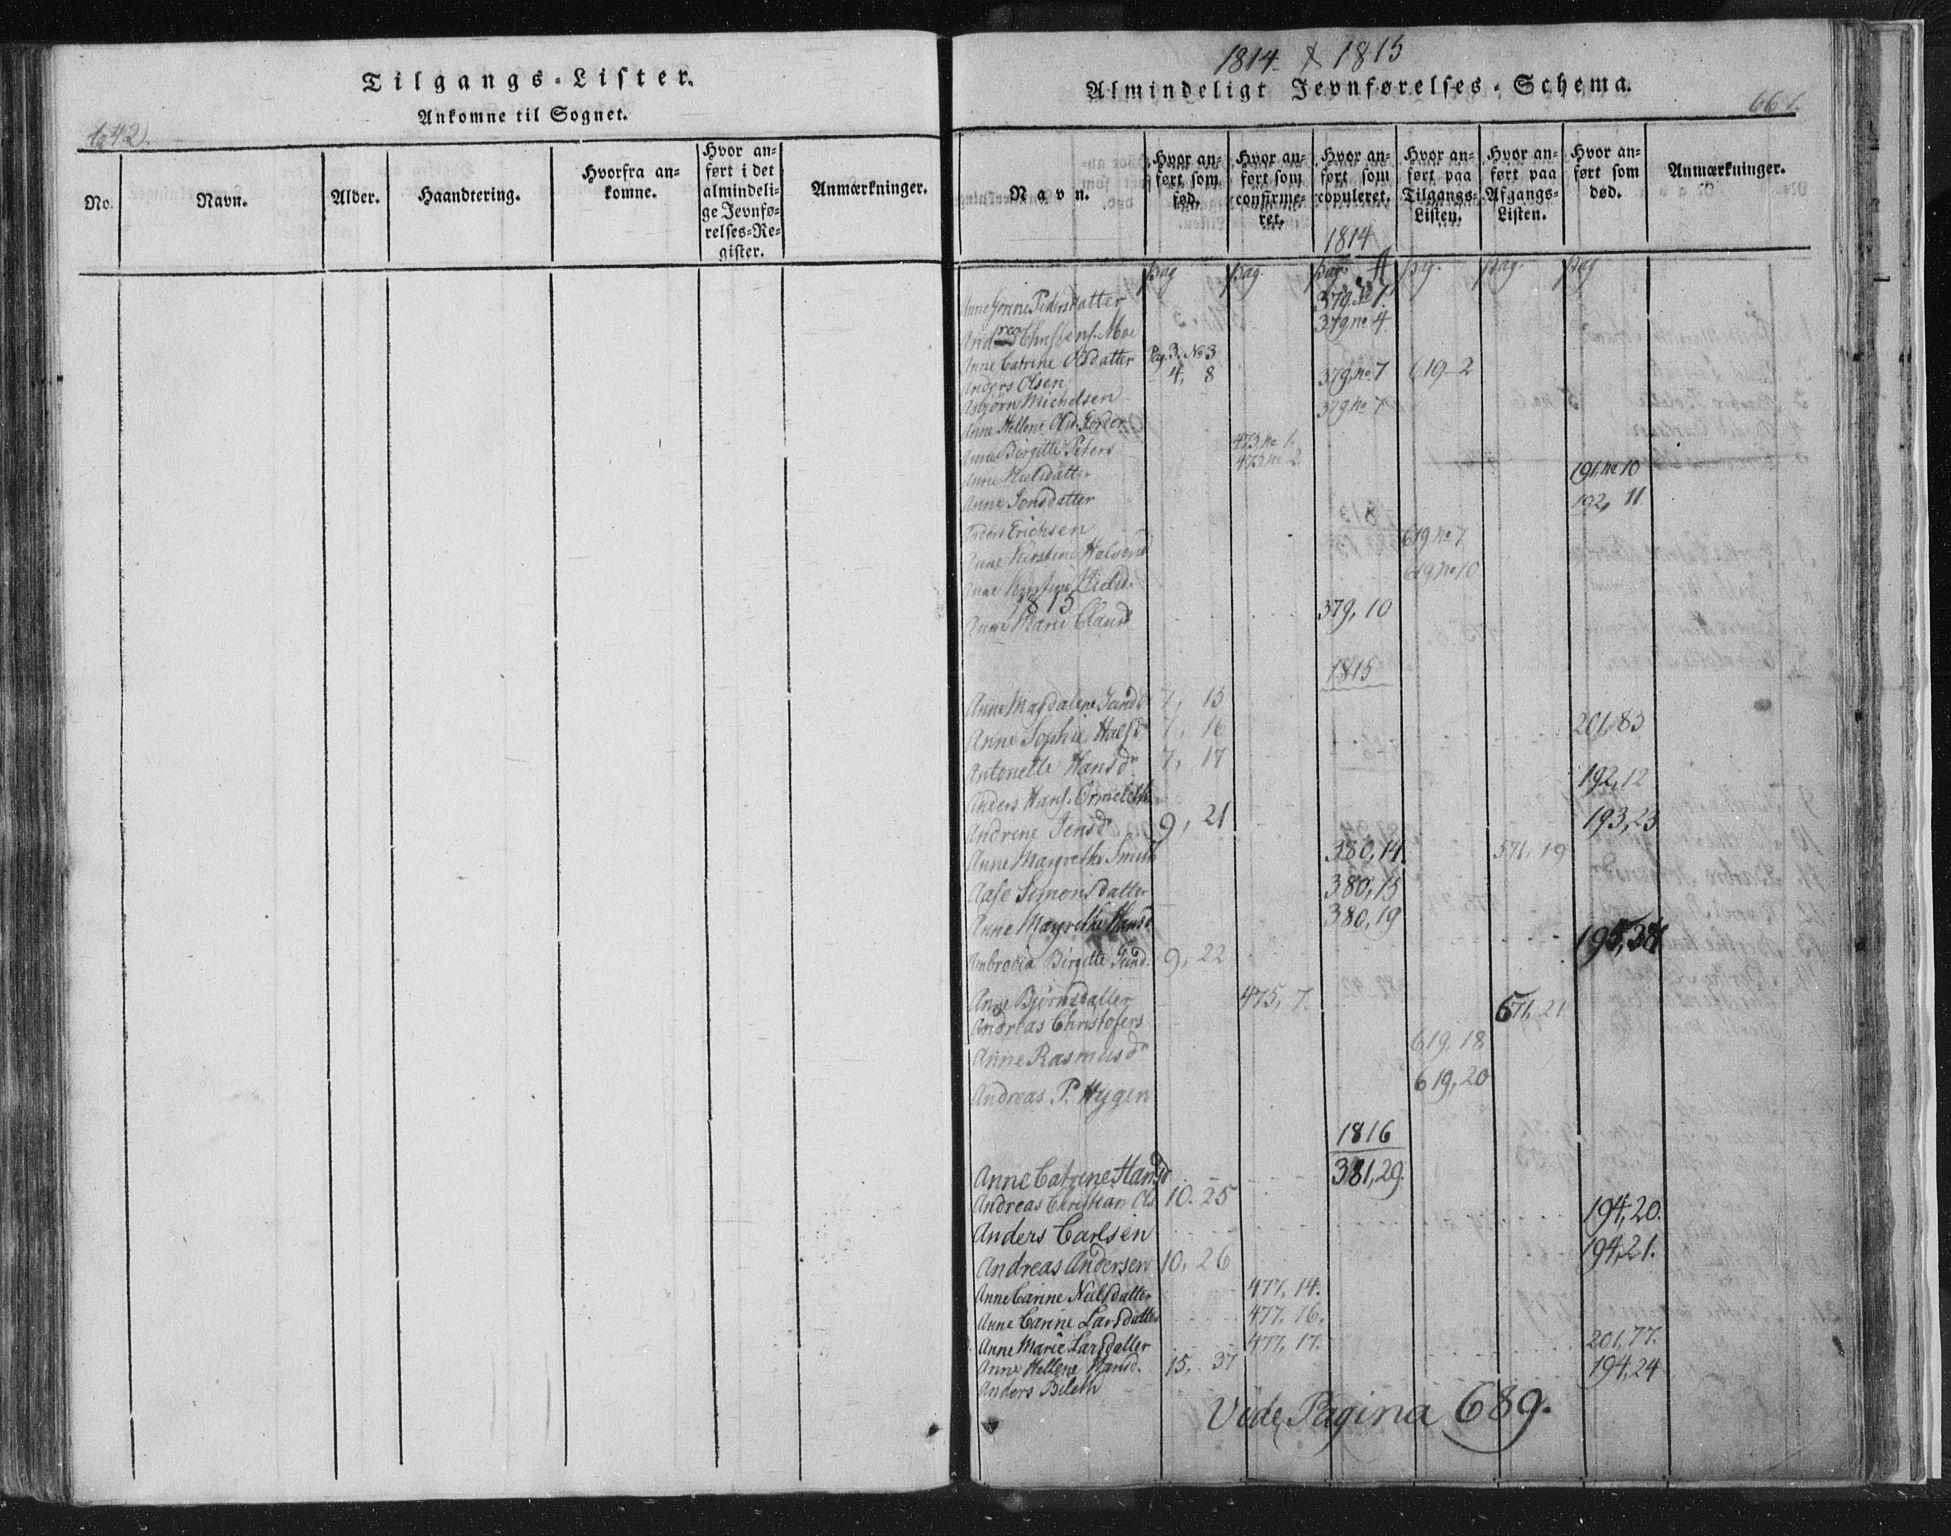 Tilgangs-Lister.
Ankomne til Sognet.
642.
No.
Navn.
Alder.
Haandtering.
Hvorfra an-
komne.
Hvor an-
ført i det
almindeli-
ge Jevnfø-
relses-Re-
gister.
Anmærkninger.
1814 & 1815
Almindeligt Jevnførelses-Schema.
661.
Navn.
Hvor an-
ført som
fød.
Hvor an-
ført som
confirme-
ret.
Hvor an-
ført som
copuleret.
Hvor an-
ført paa
Tilgangs-
Listen.
Hvor an-
ført paa
Afgangs-
Listen.
Hvor an-
ført som
død.
Anmærkninger.
1814
pag pag. pag. A pag. pag. pag
Anne Pedersdatter 379 No 1.
Andreas Christens. Moe 379 no 4.
Anne Catrine Olsdatter Pag. 3. No 3
Anders Olsen 4, 8 379, no 7 619-2
Asbjørn Michelsen 379 no 7
Anne Hellene Olsd.
Anne Birgitte Peters 473 no 1.
Anne Nielsdatter 473 no 2
Anne Jonsdatter 191, no 10
Anders Erichsen 192, 11
Anne Kirstine Halvorsd 619 no 7
Anne Kirstine Nielsd. 619 no 10
1815
Anne Marie Clausd 379, 10
1815
Anne Magdalene Gundsd 7, 15
Anne Sophie 7, 16 201, 83
Antonette Hansdr 7, 17
Anders Hans. 192, 12
Andrine Jensdr 9, 21 193, 23
Anne Margrethe Smith 380, 14. 571, 19
Aase Simonsdatter 380, 15
Anne Margrethe Hansd 380, 19
Ambrosia Birgitte Gund. 9, 22 195, 38
Anne Bjørnsdatter 475, 7.
Andreas Christofers 571, 21
Anne Rasmusdr 619, 18
Andreas P. Hygen 619, 20
1816
Anne Catrine Hansd 381, 29.
Andreas Christian Ols 10. 25
Anders Carlsen 194, 20.
Andreas Andersen 10, 26 194, 21.
Anne Carine Nielsdatter 477, 14.
Anne Carine Larsdatter 477, 16.
Anne Marie Larsdatter 477, 17. 201, 77.
Anne Hellene Hansd. 15. 37 194, 24
Anders Bileth
Vide Pagina 689.